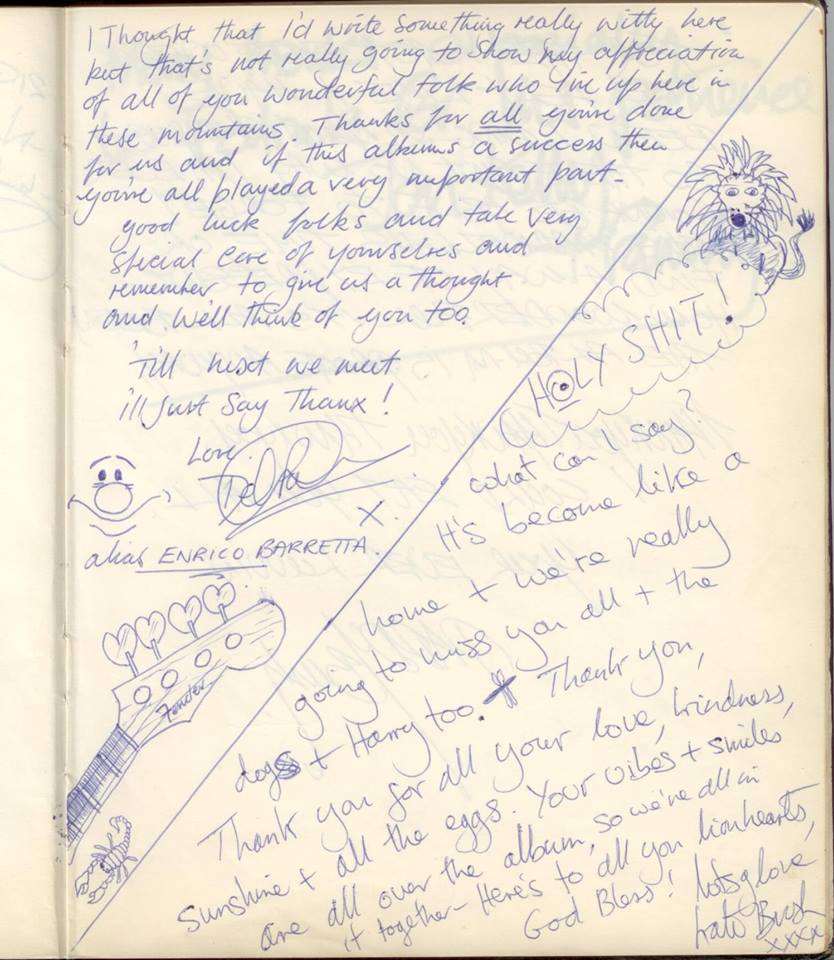 I Thought that I'd write something really witty here
but that's not really going to show my appreciation
of all of you wonderful folk who live up here in
these mountains. Thanks for all you've done
for us and if this albums a success then
you're all played a very important part-
good luck folks and take very
special care of yourselves and
remember to give us a thought
and we'll think of you too.
'Till next we meet
i'll Just Say Thanx!
Love
Del
X.
alias ENRICO BARRETTA.
Fender
HOLY SHIT!
what can I say?
It's become like a
home + we're really
going to miss you all + the
dogs + Harry too. Thank you,
Thank you for all your love, kindness,
sunshine + all the eggs. Your vibes + smiles
are all over the album, so we're all in
it together - Here's to all you lionhearts,
God Bless! lotsglove
Kate Bush
xxxx